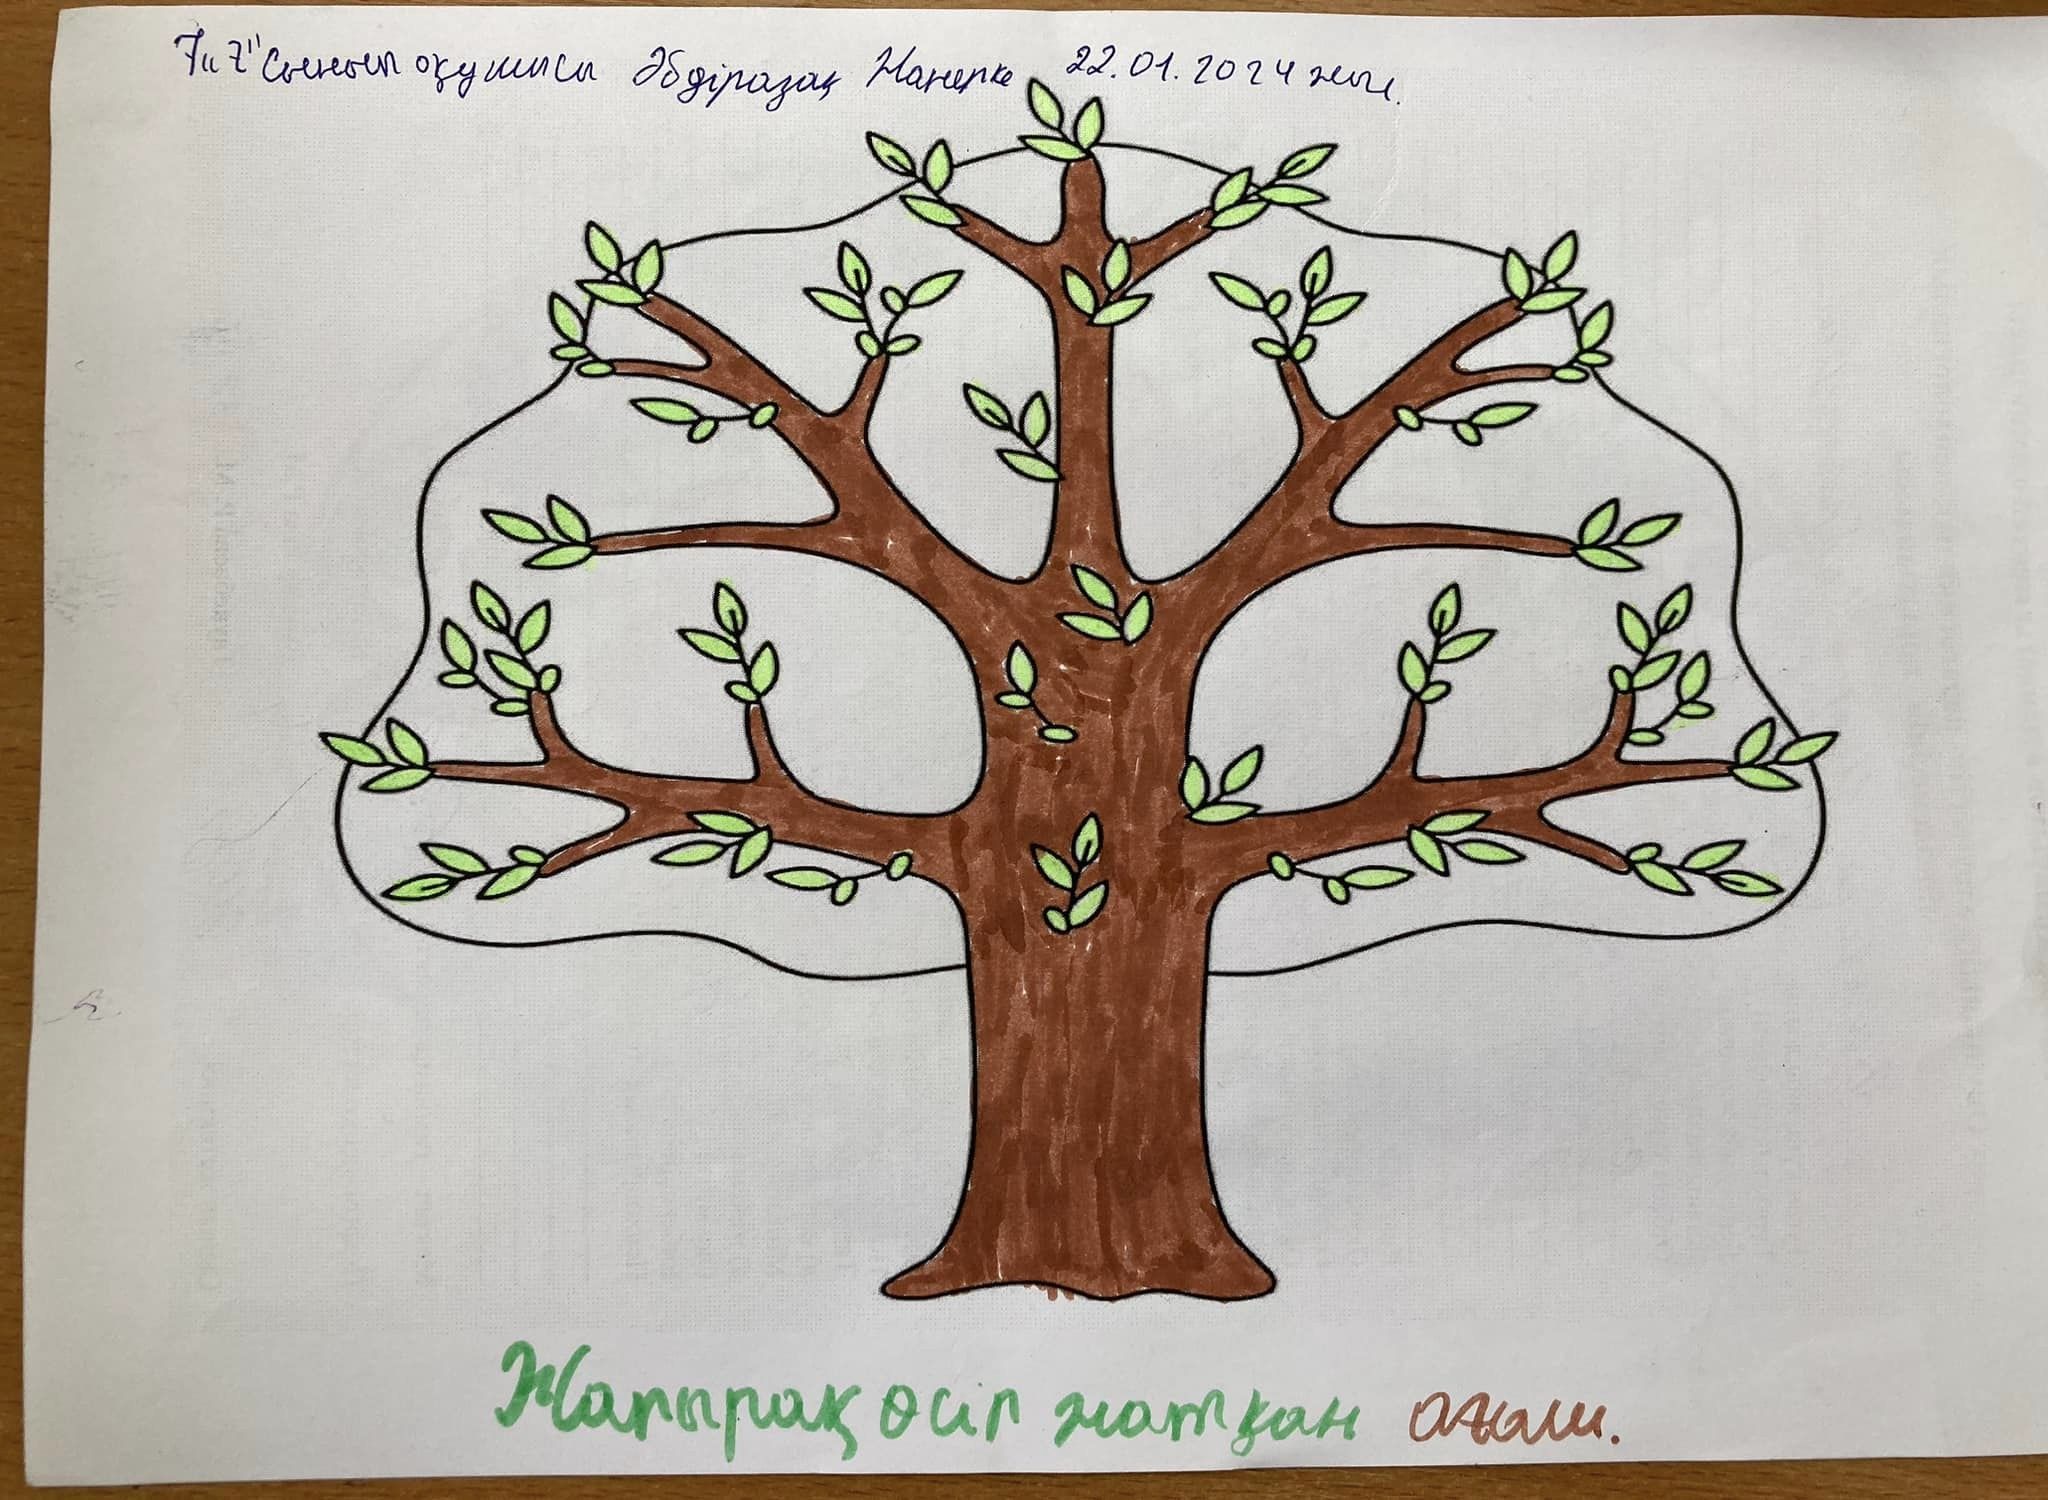 7 "Z" Сыныпоқушысы Әбдіразақ Нанерке 22.01.2024 жыл.
Жапырақ өсіп жатқан ағаш.